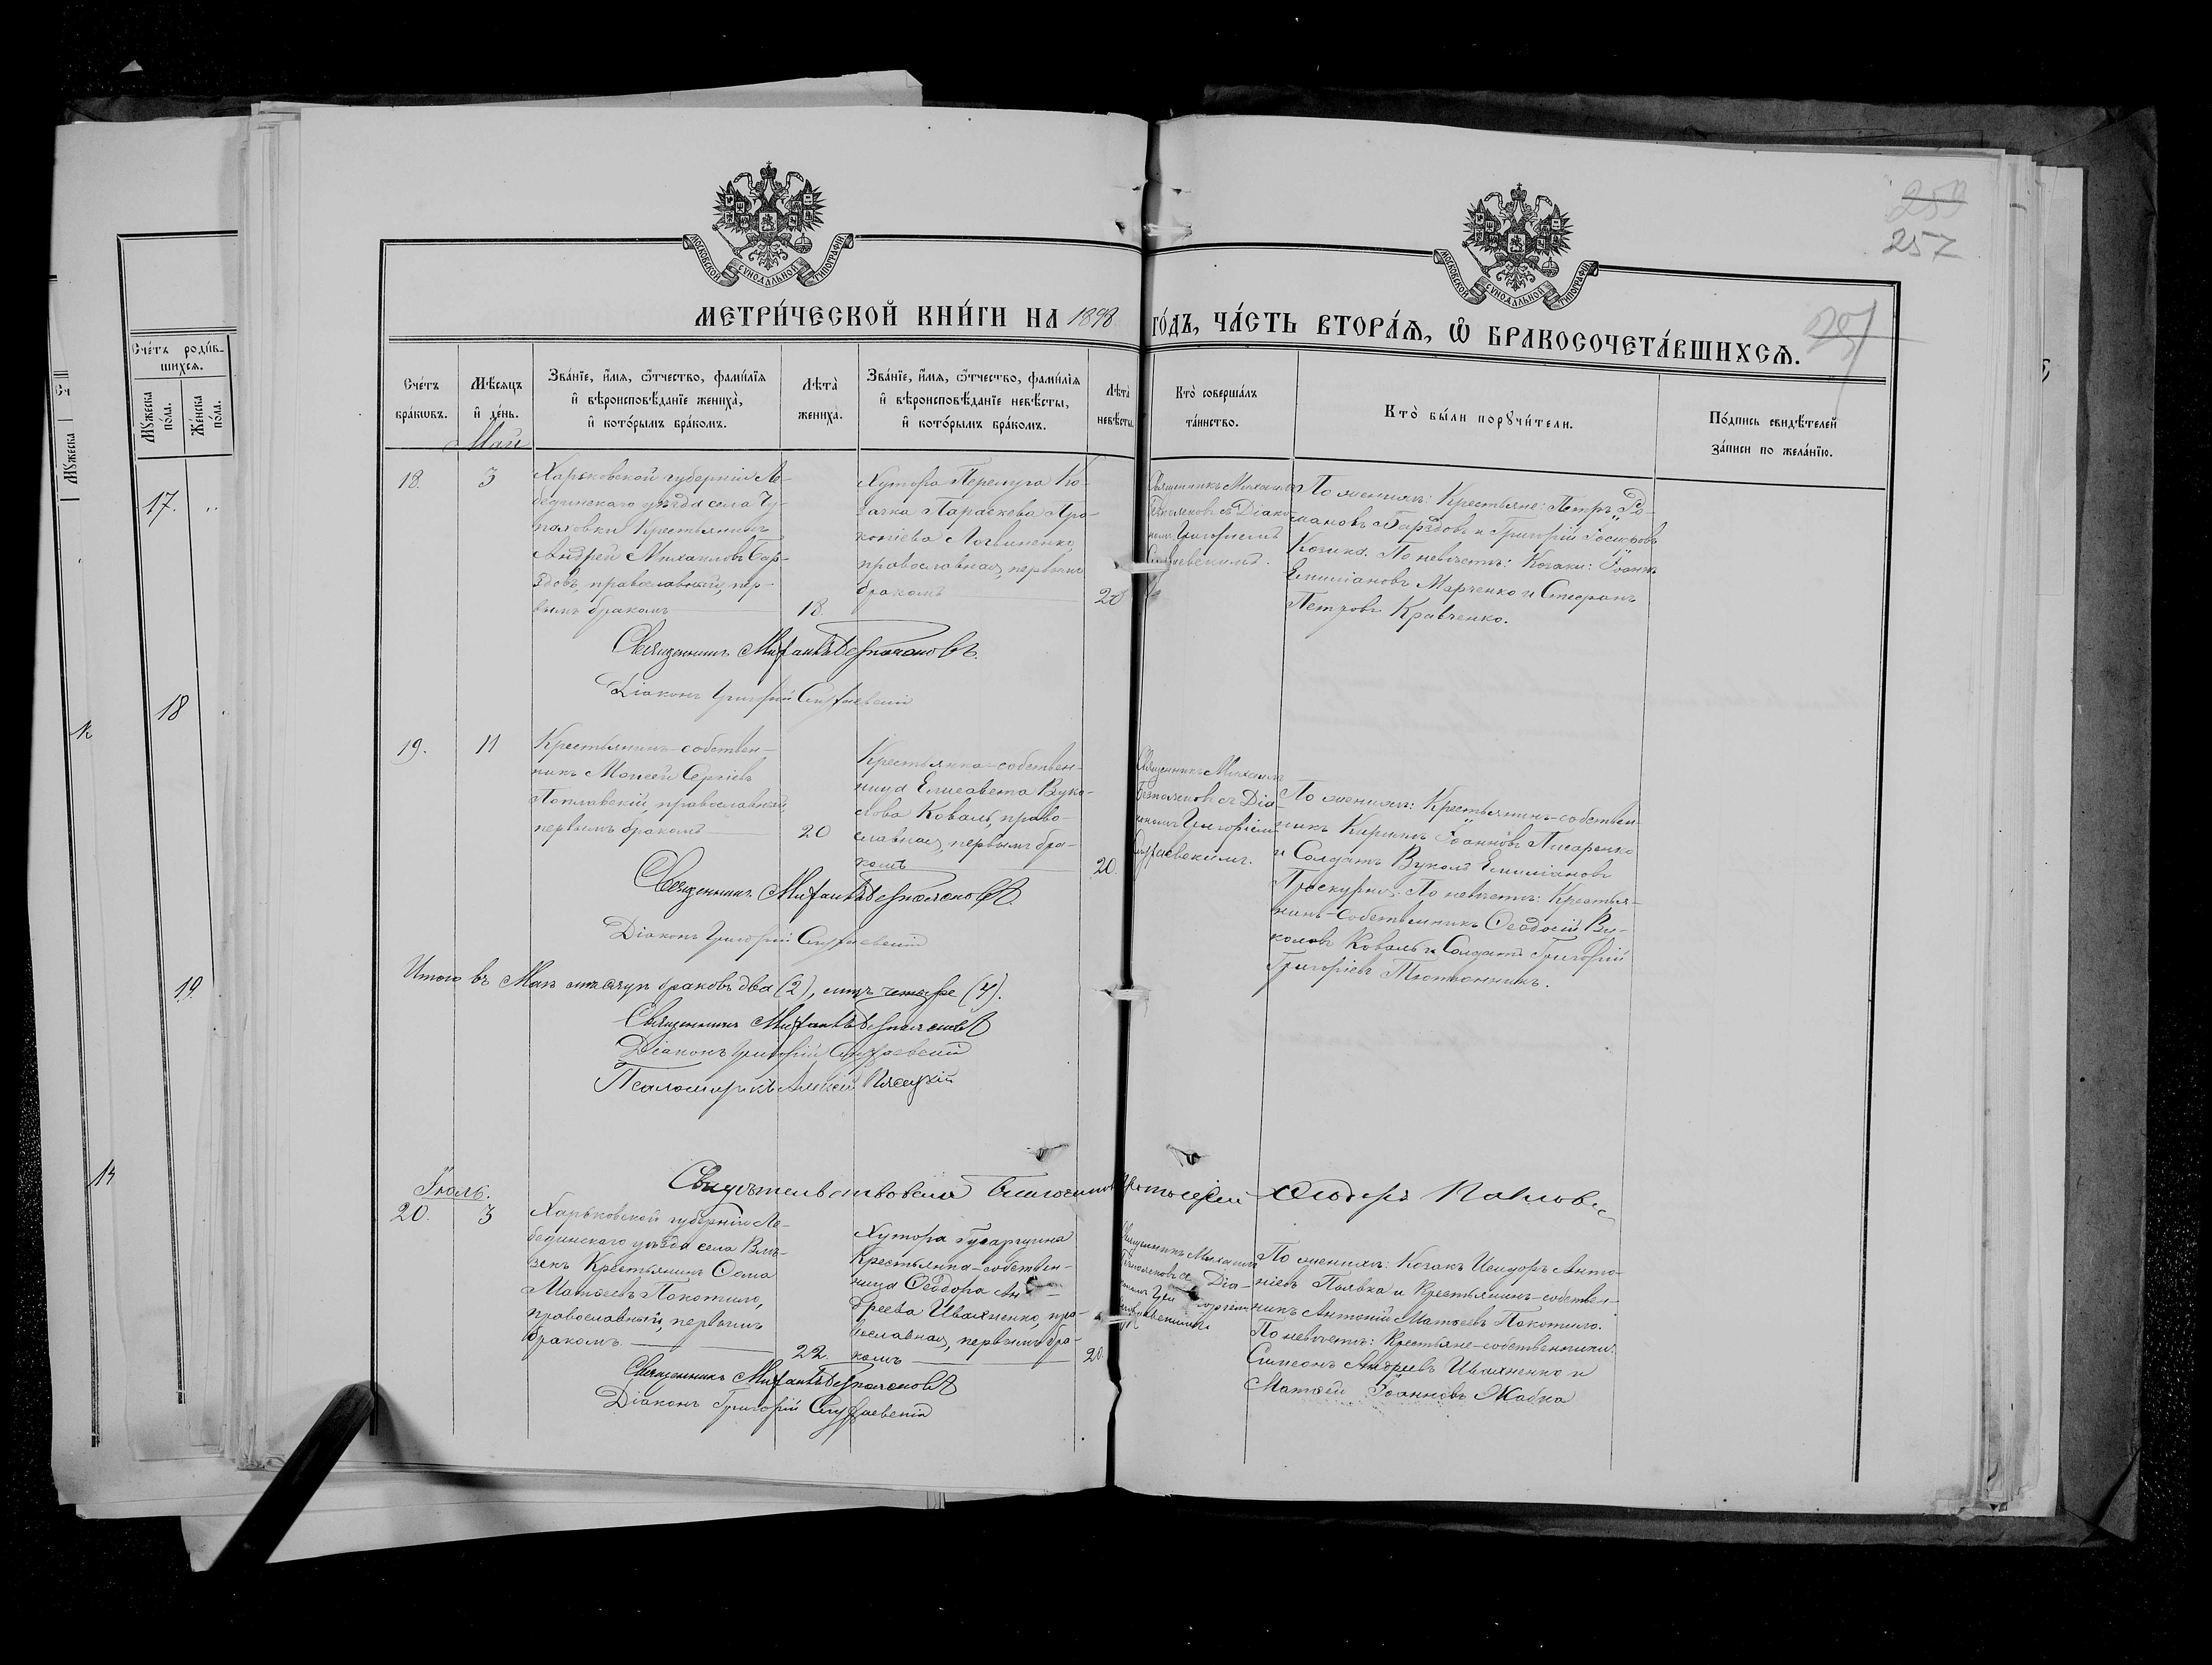 250
257
257
МОСКОВСКОЙ СУНОДАЛЬНОЙ ТИПОГРАФІИ
МОСКОВСКОЙ СУНОДАЛЬНОЙ ТИПОГРАФІИ
МЕТРИ́ЧЕСКОЙ КНИ́ГИ НА 1898 ГО́ДЪ, ЧА́СТЬ ВТОРА́Ѧ, Ѡ҆ БРАКОСОЧЕТА́ВШИХСѦ.
Сче́тъ роди́в-
шихсѧ.
Мꙋ́жеска
по́ла.
Же́нска
по́ла.
Мꙋ́жеска
17.
18
19.
14
Сче́тъ
бра́ковъ.
Мѣ́сѧцъ
и҆ де́нь.
Зва́нїе, и҆́мѧ, ѻ҆́тчество, фами́лїѧ
и҆ вѣроисповѣ́данїе жениха̀,
и҆ кото́рымъ бра́комъ.
Лѣта̀
жениха̀.
Зва́нїе, и҆́мѧ, ѻ҆́тчество, фами́лїѧ
и҆ вѣроисповѣ́данїе невѣ́сты,
и҆ кото́рымъ бра́комъ.
Лѣта̀
невѣ́сты.
Кто̀ соверша́лъ
та́инство.
Кто̀ бы́ли порꙋчи́тели.
По́дпись свидѣ́телей
за́писи по жела́нїю.
Май
18.
3
Харьковской губерніи Ле-
бединскаго уѣзда села Чу-
паховки Крестьянинъ
Андрей Михаиловъ Бар-
здовъ, православный, пер-
вымъ бракомъ
18.
Хутора Перелуга Ко-
зачка Параскева Про-
копіева Логвиненко,
православная, первымъ
бракомъ
20
Священникъ Михаилъ
Безпалековъ съ Діако-
номъ Григоріемъ
По женихѣ: Крестьяне: Петръ Ро-
мановъ Барздовъ и Григорій
Козика. По невѣстѣ: Козаки: Іоаннъ
Емиліановъ Марченко и Стефанъ
Петровъ Кравченко.
Священникъ Михаилъ
Діаконъ Григорій
19.
11
Крестьянинъ-собствен-
никъ Моисей Сергіевъ
Поплавскій, православный,
первымъ бракомъ
20
Крестьянка-собствен-
ница Елисавета Вуко-
лова Коваль, право-
славная, первымъ бра-
комъ
20.
Священникъ Михаилъ
съ Діа-
кономъ Григоріемъ
По женихѣ: Крестьянинъ-собствен-
никъ Кириллъ Іоанновъ Писаренко
и Солдатъ Вуколъ Емиліановъ
Проскурня. По невѣстѣ: Крестья-
нинъ-собственникъ Ѳеодосій Ву-
коловъ Коваль и Солдатъ Григорій
Григоріевъ Тютюнникъ.
Священникъ Михаилъ
Діаконъ Григорій
Итого въ Маѣ мѣсяцѣ браковъ два (2), лицъ четыре (4).
Священникъ Михаилъ
Діаконъ Григорій
Псаломщикъ Алексій
Свидѣтельствовалъ Благочинный Протоіерей Ѳеодоръ Павловъ
Іюль.
20.
3
Харьковской губерніи Ле-
бединскаго уѣзда села Влѣ-
зекъ Крестьянинъ Ѳома
Матѳеевъ Покотило,
православный, первымъ
бракомъ.
22.
Хутора
Крестьянка-собствен-
ница Ѳеодора Ан-
дреева Ивахненко, пра-
вославная, первымъ бра-
комъ
20.
Священникъ Михаилъ
съ Діа-
кономъ Григоріемъ
По женихѣ: Козакъ Исидоръ Анто-
ніевъ Пьявка и Крестьянинъ-собствен-
никъ Антоній Матѳеевъ Покотило.
По невѣстѣ: Крестьяне-собственники:
Симеонъ Андреевъ Ивахненко и
Матѳей Іоанновъ Жабка
Священникъ Михаилъ
Діаконъ Григорій